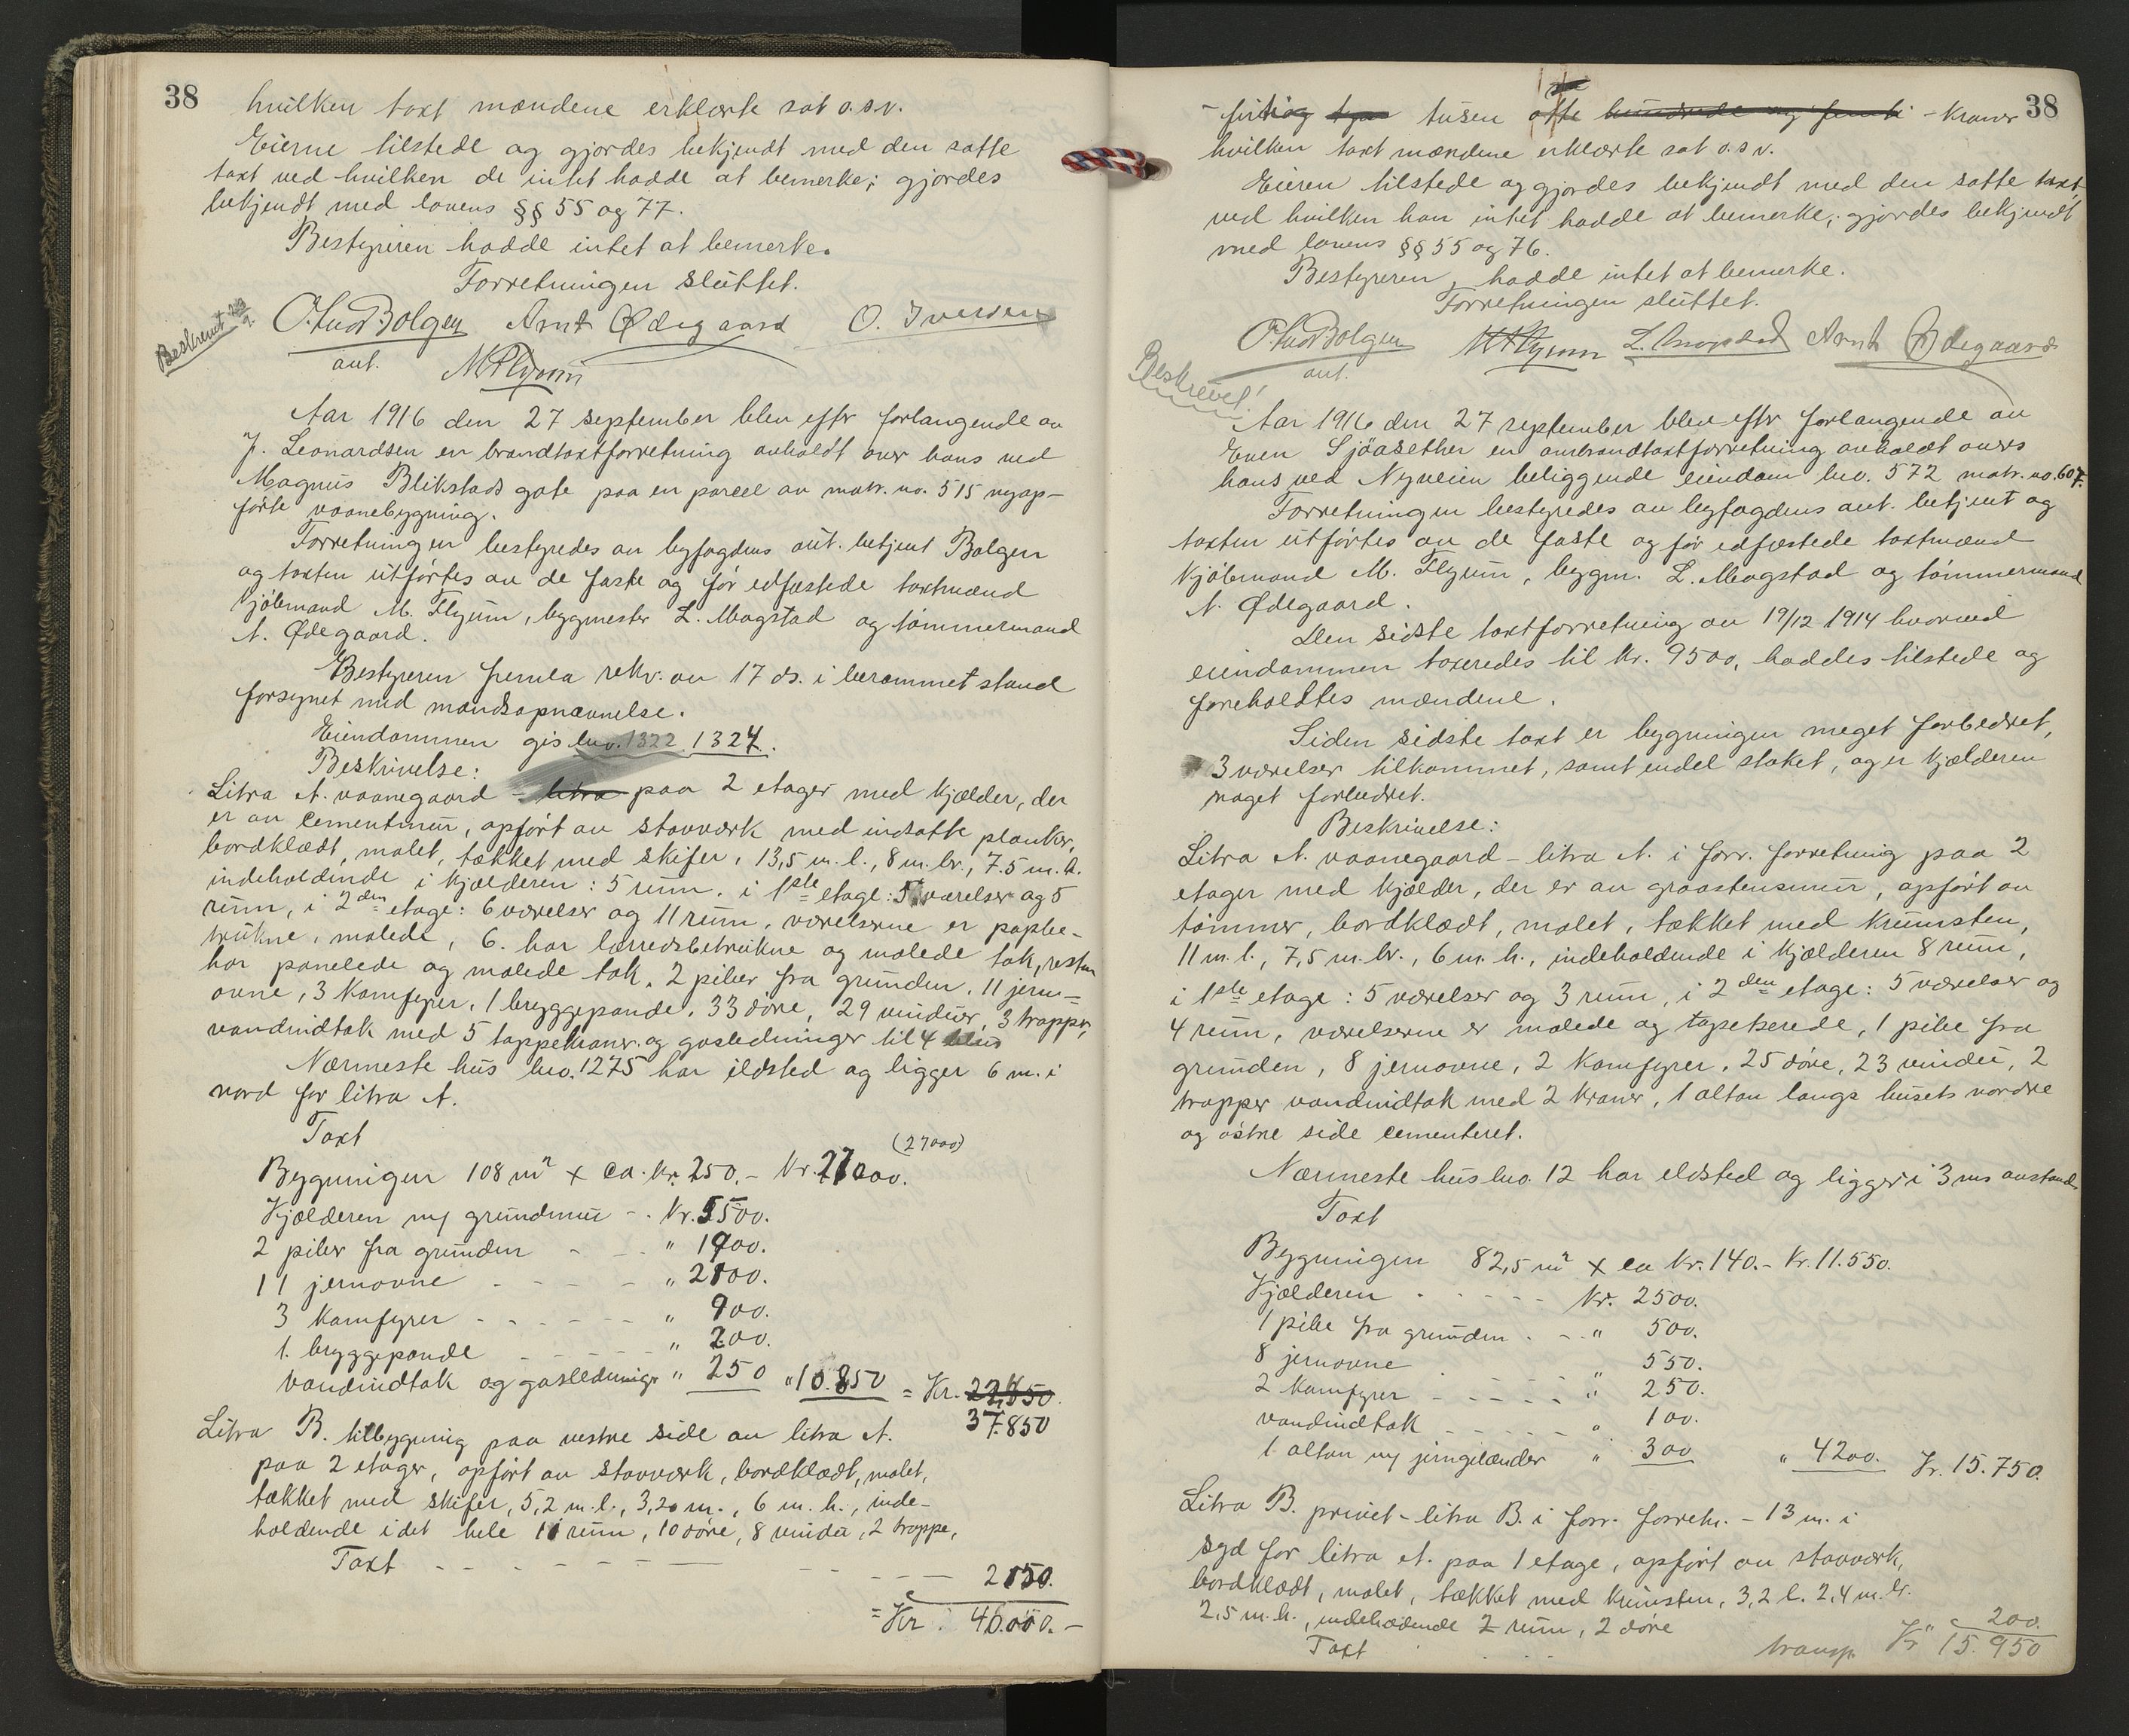 38
hvilken taxt mændene erklærte sat o.s.v.
Eierne tilstede og gjordes bekjendt med den satte
taxt ved hvilken de intet hadde at bemerke; gjordes
bekjendt med lovens §§ 55 og 77.
Bestyreren hadde intet at bemerke.
Forretningen sluttet.
Beskrevet
Bolgen Arnt Ødegaard O. Iversen
aut. M Flyum
Aar 1916 den 27 september blev efter forlangende av
J. Leonardsen en brandtaxtforretning avholdt over hans ved
Magnus Blikstads gate paa en parcel av matr. no. 515 nyop-
førte vaanebygning.
Forretningen bestyredes av byfogdens aut. betjent Bolgen
og taxten utførtes av de faste og før edfæstede taxtmænd
kjøbmand M. Flyum, bygmester L. Magstad og tømmermand
A. Ødegaard.
Bestyreren fremla rekv. av 17 ds. i berammet stand
forsynet med mandsopnævnelse.
Eiendommen gis bno. 1322 1324.
Beskrivelse:
Litra A. vaanegaard - litra paa 2 etager med kjælder, der
er av cementmur, opført av stavverk med indsatte planker,
bordklædt, malet, tækket med skifer, 13,5 m. l., 8 m. br., 7.5 m. h.
indeholdende i kjælderen: 5 rum. i 1ste etage: 5 værelser og 5
rum, i 2den etage: 6 værelser og 11 rum, værelserne er papbe-
trukne, malede, 6. har lærredsbetrukne og malede tak, resten
har panelede og malede tak. 2 piber fra grunden. 11 jern-
ovne, 3 komfyrer, 1 bryggepande. 33 døre, 29 vinduer, 3 trapper,
vandindtak med 5 tappekraner og gasledninger til 4 blus
Nærmeste hus bno. 1275 har ildsted og ligger 6 m. i
nord for litra A.
Taxt
(27000)
Bygningen 108 m² x ca. kr. 250.- Kr. 27000.
Kjælderen m/ grundmur - . Kr. 5500.
2 piber fra grunden - - - " 1900.
11 jernovne - - - - " 2100.
3 komfyrer - - - - - " 900.
1. bryggepande - - - - " 200.
vandindtak og gasledninger " 250 " 10.850 = Kr. 22,850.
37.850
Litra B. tilbygning paa vestre side av litra A.
paa 2 etager, opført av stavverk, bordklædt, malet,
tækket med skifer, 5,2 m. l., 3,20 m., 6 m. h., inde-
holdende i det hele 11 rum, 10 døre, 8 vinduer, 2 trappe,
Taxt - - - - - - - - - 2150.
= Kr. 40.000.-
38
- firti og tusen otte hundrede og femti - kroner
hvilken taxt mændene erklærte sat o.s.v.
Eieren tilstede og gjordes bekjendt med den satte taxt
ved hvilken han intet hadde at bemerke; gjordes bekjendt
med lovens §§ 55 og 76.
Bestyreren, hadde intet at bemerke.
Forretningen sluttet.
Bolgen M Flyum L. Magstad Arnt Ødegaard
aut.
Beskrevet!
Aar 1916 den 27 september blev efter forlangende av
Even Sjöasether en ombrandtaxtforretning avholdt over
hans ved Nyveien beliggende eiendom bno. 572 matr. no. 607.
Forretningen bestyredes av byfogdens aut. betjent og
taxten utførtes av de faste og før edfæstede taxtmænd
kjøbmand M. Flyum, bygm. L. Magstad og tømmermand
A. Ødegaard.
Den sidste taxtforretning av 19/12 1914 hvorved
eiendommen taxeredes til kr. 9500, haddes tilstede og
foreholdtes mændene.
Siden sidste taxt er bygningen meget forbedret,
3 værelser tilkommet, samt endel staket, og er kjælderen
noget forbedret.
Beskrivelse:
Litra A. vaanegaard - litra A. i forr. forretning paa 2
etager med kjælder, der er av graastensmur, opført av
tømmer, bordklædt, malet, tækket med krumsten,
11 m. l., 7,5 m. br., 6 m. h., indeholdende i kjælderen 8 rum,
i 1ste etage: 5 værelser og 3 rum, i 2den etage: 5 værelser og
4 rum, værelserne er malede og tapetserede, 1 pibe fra
grunden, 8 jernovne, 2 komfyrer, 25 døre, 23 vindu, 2
trapper vandindtak med 2 kraner, 1 altan langs husets nordre
og østre side cementeret.
Nærmeste hus bno. 12 har ildsted og ligger i 3 ms avstand.
Taxt
Bygningen 82,5 m² x ca Kr. 140.- Kr. 11.550.
Kjælderen . - - - - Kr. 2500.
1 pibe fra grunden . - - " 500.
8 jernovne " 550.
2 komfyrer - - - - " 250.
vandindtak - - - - " 100.
1 altan m/ jerngelænder " 300 " 4200. Kr. 15.750.
Litra B. privet - litra B. i forr. forretn. - 13 m. i
syd for litra A. paa 1 etage, opført av stavverk,
bordklædt, malet, tækket med krumsten, 3,2 l. 2,4 m. br.
2,5 m. h., indeholdende 2 rum, 2 døre
Taxt " 200.
transp. Kr 15.950